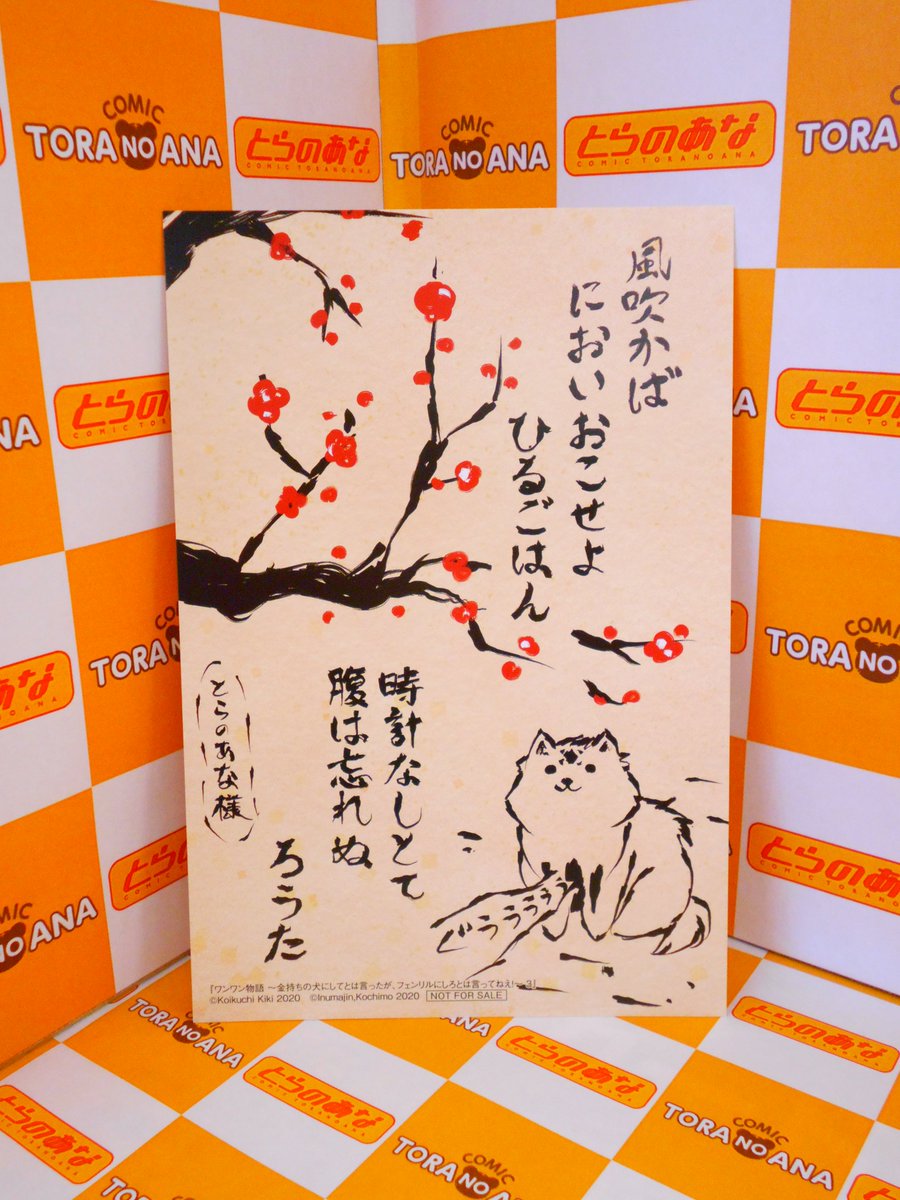 風吹かば
においおこせよ
ひるごはん
時計なしとて
腹は忘れぬ
ろうた
(とらのあな様)
ぐぅぅぅぅ
『ワンワン物語 ～金持ちの犬にしてとは言ったが、フェンリルにしろとは言ってねえ!～ 3』
©Koikuchi Kiki 2020 ©Inumajin,Kochimo 2020 NOT FOR SALE
COMIC
TORA NO ANA
とらのあな
COMIC TORANOANA
COMIC
TORA NO ANA
とらのあな
COMIC TORANOANA